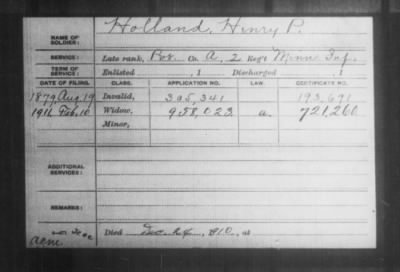 NAME OF SOLDIER: Holland, Henry P.
SERVICE: Late rank, Co. A, 2 Reg't Minn Inf.
TERM OF SERVICE: Enlisted , 1 Discharged , 1
DATE OF FILING. CLASS. APPLICATION NO. LAW. CERTIFICATE NO.
1879 Aug. 19 Invalid, 305,341 193,691
1911 Feb. 10 Widow, 958,023 a. 721,260
Minor,
ADDITIONAL SERVICES:
REMARKS:
Died Dec 24, 1910, at